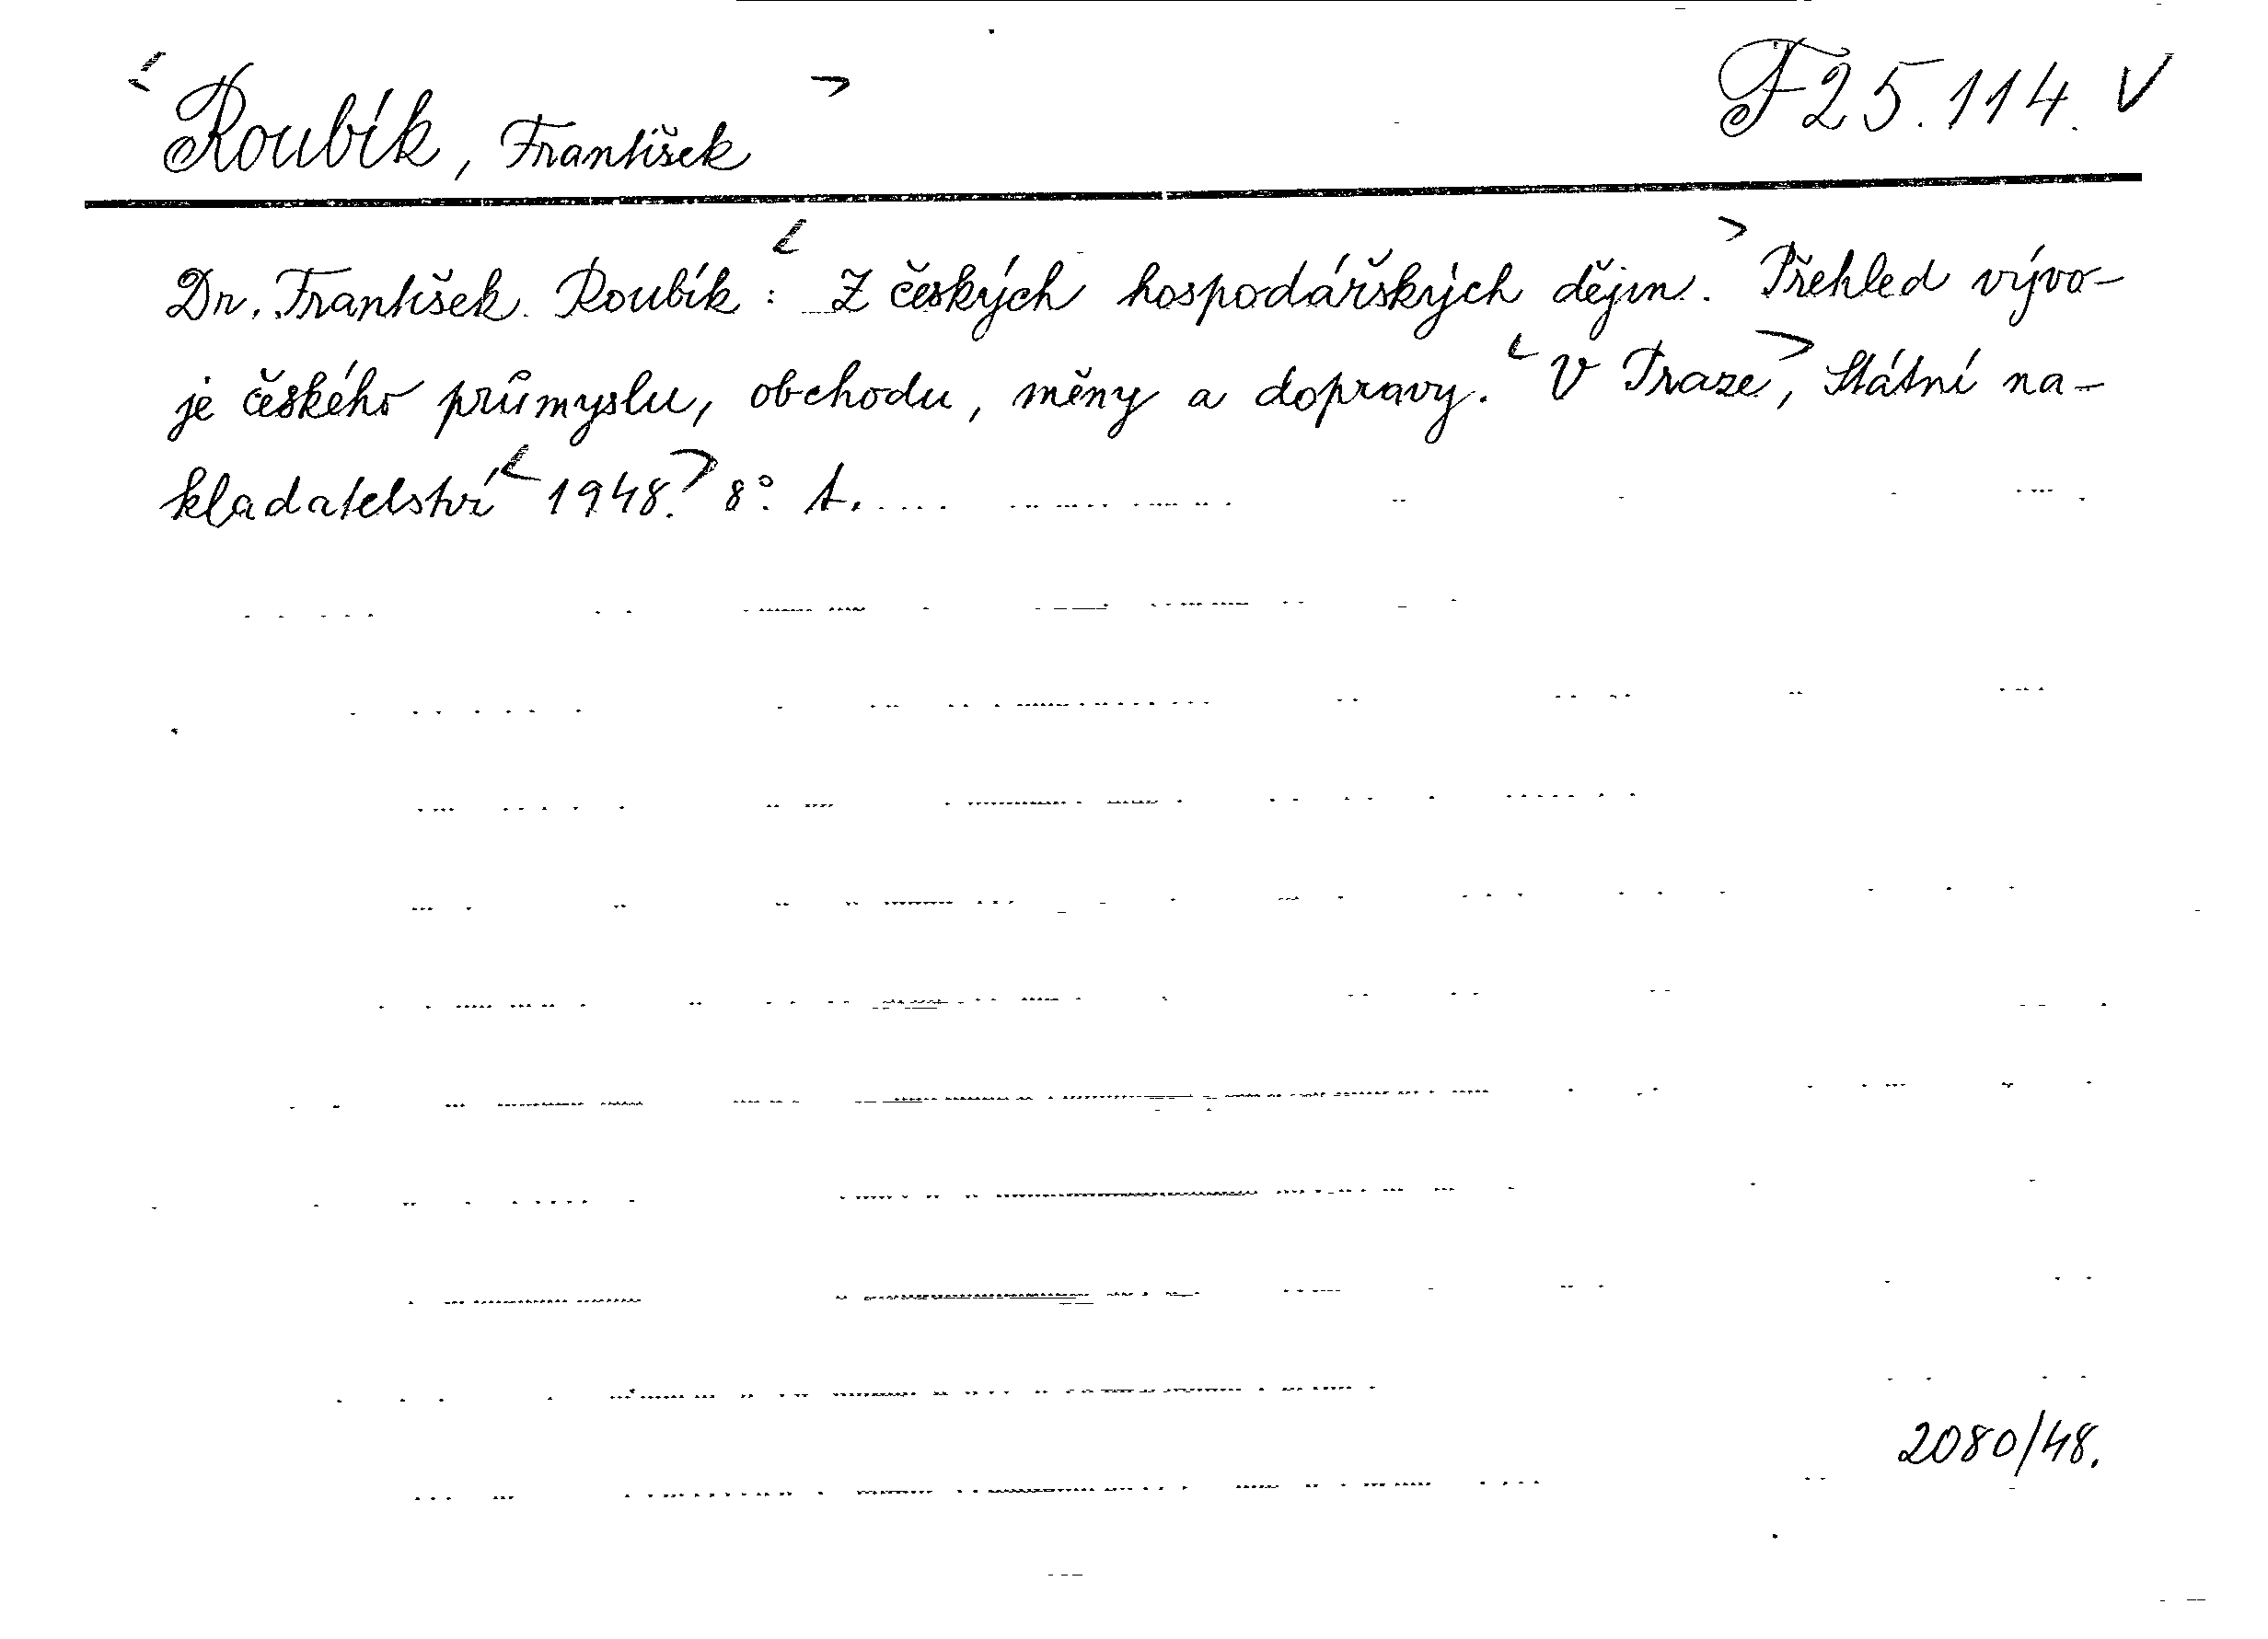 Roubík, František F 25.114. V
Dr. František Roubík: Z českých hospodářských dějin. Přehled vývo-
je českého průmyslu, obchodu, měny a dopravy. V Praze, Státní na-
kladatelství 1948. 8°. t.
2080/48.